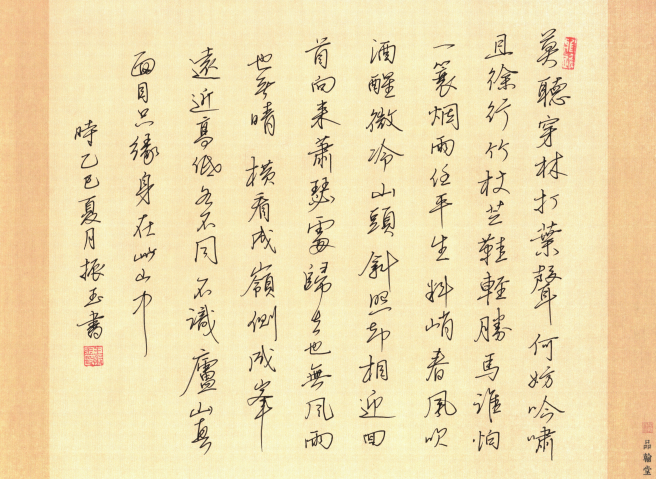 莫聽穿林打葉聲何妨吟嘯
且徐行竹杖芒鞋輕勝馬誰怕
一蓑烟雨任平生料峭春風吹
酒醒微冷山頭斜照却相迎回
首向来蕭瑟處歸去也無風雨
也無晴 橫看成嶺側成峯
遠近高低各不同不識廬山真
面目只緣身在此山中
時乙巳夏月振玉書
品翰堂